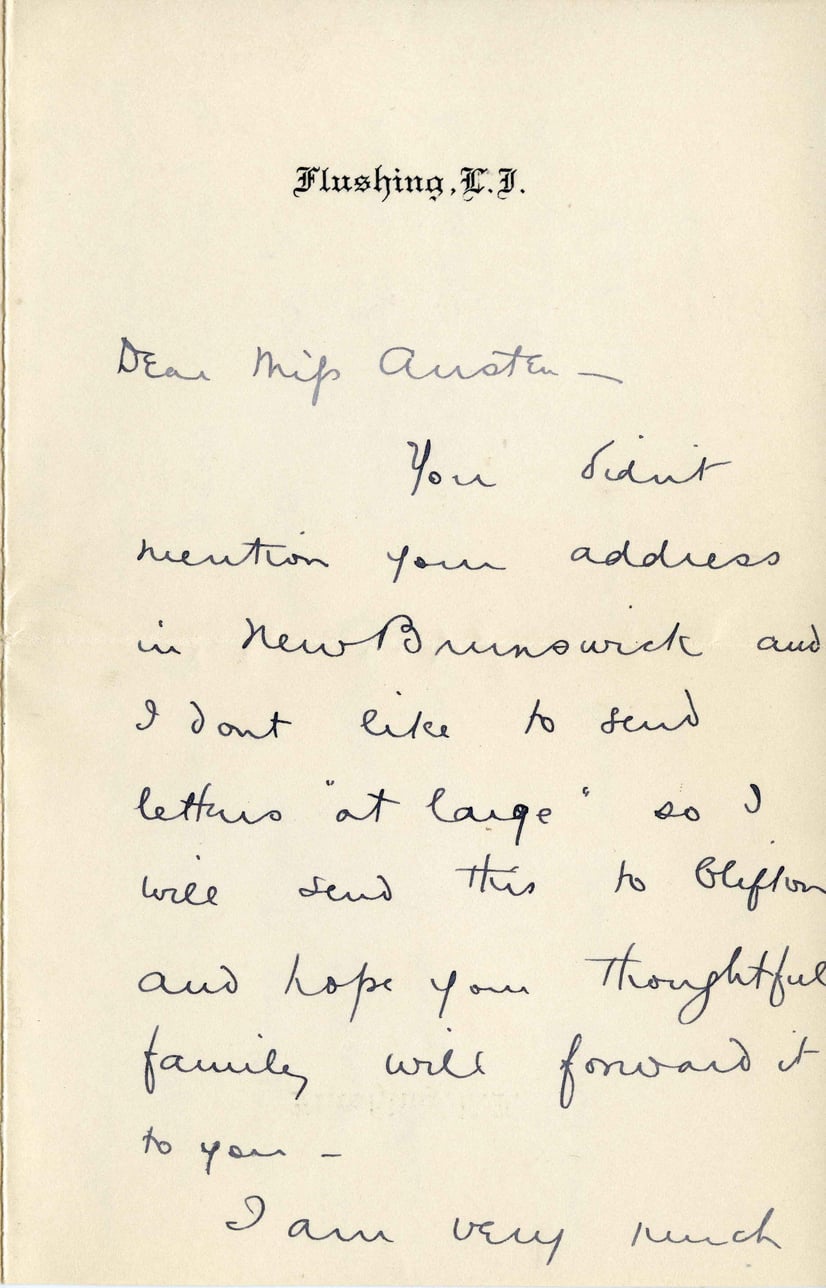 Flushing, L.I.
Dear Miss Austen —
You didn't
mention your address
in New Brunswick and
I dont like to send
letters "at large" so I
will send this to Clifton
and hope your thoughtful
family will forward it
to you —
I am very much